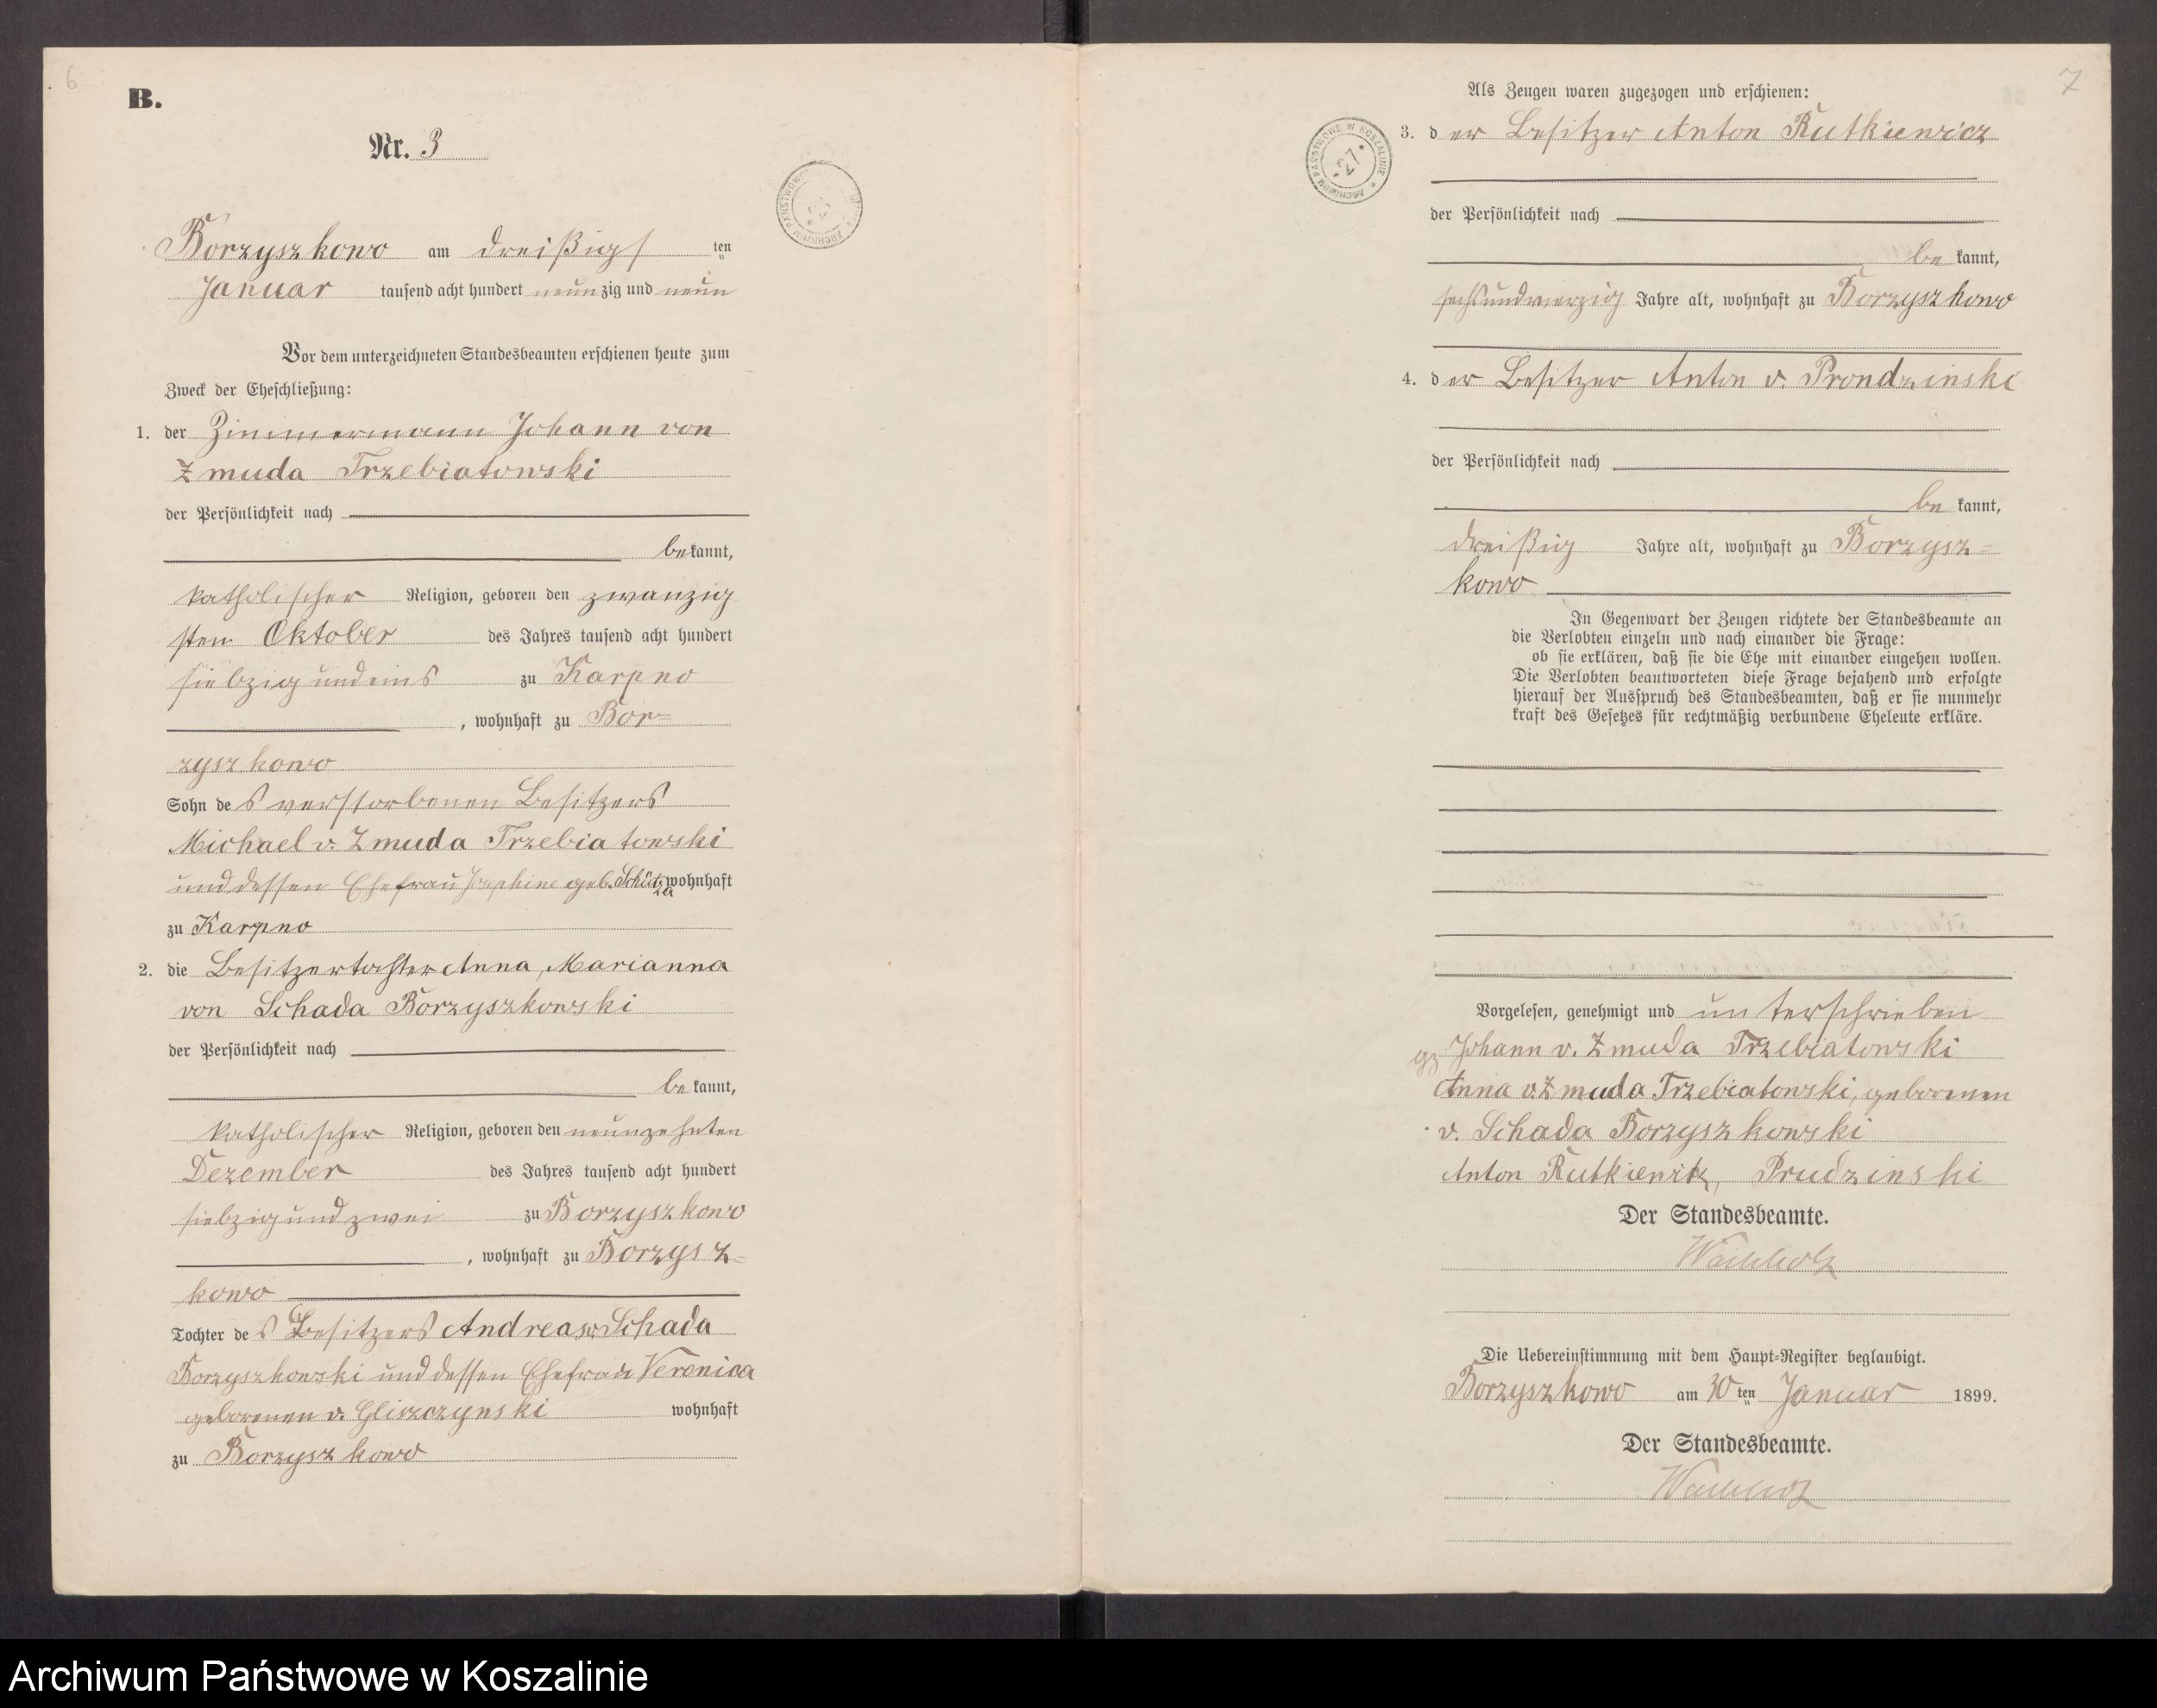 6
B.
Nr. 3
Borzyszkowo am dreißigs ten
Januar tausend acht hundert neunzig und neun
Vor dem unterzeichneten Standesbeamten erschienen heute zum
Zweck der Eheschließung:
1. der Zimmermann Johann von
Zmuda Trzebiatowski
der Persönlichkeit nach
bekannt,
katholischer Religion, geboren den zwanzig
sten Oktober des Jahres tausend acht hundert
siebzig und eins zu Karpno
, wohnhaft zu Bor=
zyszkowo
Sohn des verstorbenen Besitzers
Michael v. Zmuda Trzebiatowski
und dessen Ehefrau Josephine geb. Schütza wohnhaft
zu Karpno
2. die Besitzertochter Anna, Marianna
von Schada Borzyszkowski
der Persönlichkeit nach
bekannt,
katholischer Religion, geboren den neunzehnten
Dezember des Jahres tausend acht hundert
siebzig und zwei zu Borzyszkowo
, wohnhaft zu Borzysz=
kowo
Tochter des Besitzers Andreas v. Schada
Borzyszkowski und dessen Ehefrau Veronica
geborenen v. Gliszczynski wohnhaft
zu Borzyszkowo
7
Als Zeugen waren zugezogen und erschienen:
ARCHIWUM PAŃSTWOWE W KOSZALINIE
27
3. der Besitzer Anton Rutkiewicz
der Persönlichkeit nach
bekannt,
sechsundvierzig Jahre alt, wohnhaft zu Borzyszkowo
4. der Besitzer Anton v. Prondzinski
der Persönlichkeit nach
bekannt,
dreißig Jahre alt, wohnhaft zu Borzysz=
kowo
In Gegenwart der Zeugen richtete der Standesbeamte an
die Verlobten einzeln und nach einander die Frage:
ob sie erklären, daß sie die Ehe mit einander eingehen wollen.
Die Verlobten beantworteten diese Frage bejahend und erfolgte
hierauf der Ausspruch des Standesbeamten, daß er sie nunmehr
kraft des Gesetzes für rechtmäßig verbundene Eheleute erkläre.
Vorgelesen, genehmigt und unterschrieben
gz Johann v. Zmuda Trzebiatowski
Anna v. Zmuda Trzebiatowski, geborenen
v. Schada Borzyszkowski
Anton Rutkiewitz, Prudzinski
Der Standesbeamte.
Wachholz
Die Uebereinstimmung mit dem Haupt-Register beglaubigt.
Borzyszkowo am 30 ten Januar 1899.
Der Standesbeamte.
Wachholz
Archiwum Państwowe w Koszalinie